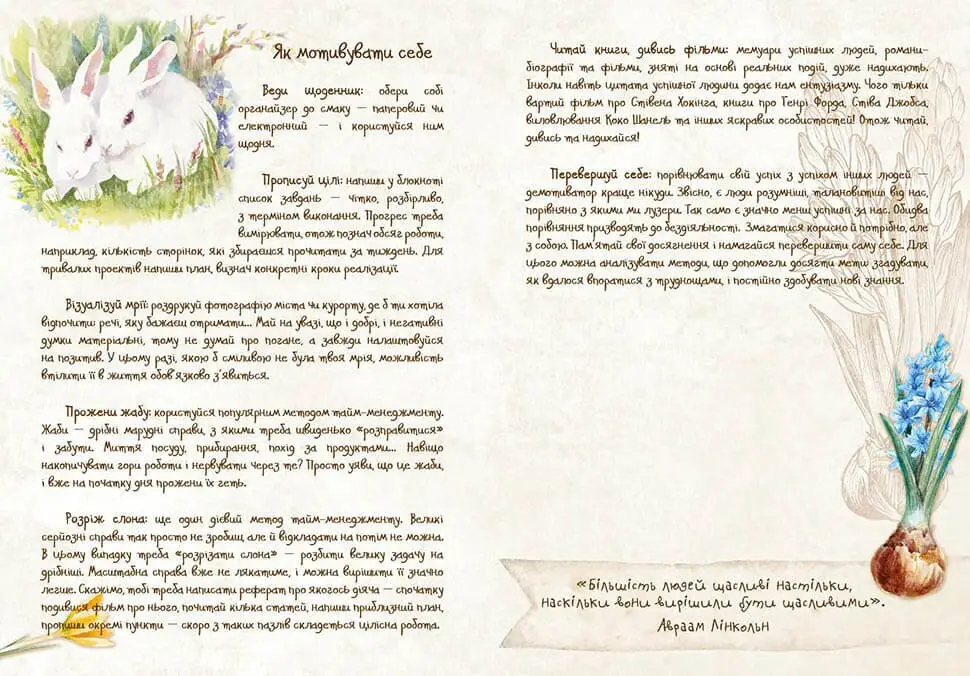 Як мотивувати себе
Веди щоденник: обери собі
органайзер до смаку — паперовий чи
електронний — і користуйся ним
щодня.
Прописуй цілі: напиши у блокноті
список завдань — чітко, розбірливо,
з терміном виконання. Прогрес треба
вимірювати, отож познач обсяг роботи,
наприклад, кількість сторінок, які збираєшся прочитати за тиждень. Для
тривалих проектів напиши план, визнач конкретні кроки реалізації.
Візуалізуй мрії: роздрукуй фотографію міста чи курорту, де б ти хотіла
відпочити, речі, яку бажаєш отримати... Май на увазі, що і добрі, і негативні
думки матеріальні, тому не думай про погане, а завжди налаштовуйся
на позитив. У цьому разі, якою б сміливою не була твоя мрія, можливість
втілити її в життя обов'язково з'явиться.
Прожени жабу: користуйся популярним методом тайм-менеджменту.
Жаби — дрібні марудні справи, з якими треба швиденько «розправитися»
і забути. Миття посуду, прибирання, похід за продуктами... Навіщо
накопичувати гори роботи і нервувати через те? Просто уяви, що це жаби,
і вже на початку дня прожени їх геть.
Розріж слона: ще один дієвий метод тайм-менеджменту. Великі
серйозні справи так просто не зробиш, але й відкладати на потім не можна.
В цьому випадку треба «розрізати слона» — розбити велику задачу на
дрібніші. Масштабна справа вже не лякатиме, і можна вирішити її значно
легше. Скажімо, тобі треба написати реферат про якогось діяча — спочатку
подивися фільм про нього, почитай кілька статей, напиши приблизний план,
пропиши окремі пункти — скоро з таких пазлів складеться цілісна робота.
Читай книги, дивись фільми: мемуари успішних людей, романи-
біографії та фільми, зняті на основі реальних подій, дуже надихають.
Інколи навіть цитата успішної людини додає нам ентузіазму. Чого тільки
вартий фільм про Стівена Хокінга, книги про Генрі Форда, Стіва Джобса,
виловлювання Коко Шанель та інших яскравих особистостей! Отож читай,
дивись та надихайся!
Перевершуй себе: порівнювати свій успіх з успіхом інших людей —
демотиватор краще нікуди. Звісно, є люди розумніші, талановитіші від нас,
порівняно з якими ми лузери. Так само є значно менш успішні за нас. Обидва
порівняння призводять до бездіяльності. Змагатися корисно й потрібно, але
з собою. Пам'ятай свої досягнення і намагайся перевершити саму себе. Для
цього можна аналізувати методи, що допомогли досягти мети, згадувати,
як вдалося впоратися з труднощами, і постійно здобувати нові знання.
«Більшість людей щасливі настільки,
наскільки вони вирішили бути щасливими».
Авраам Лінкольн